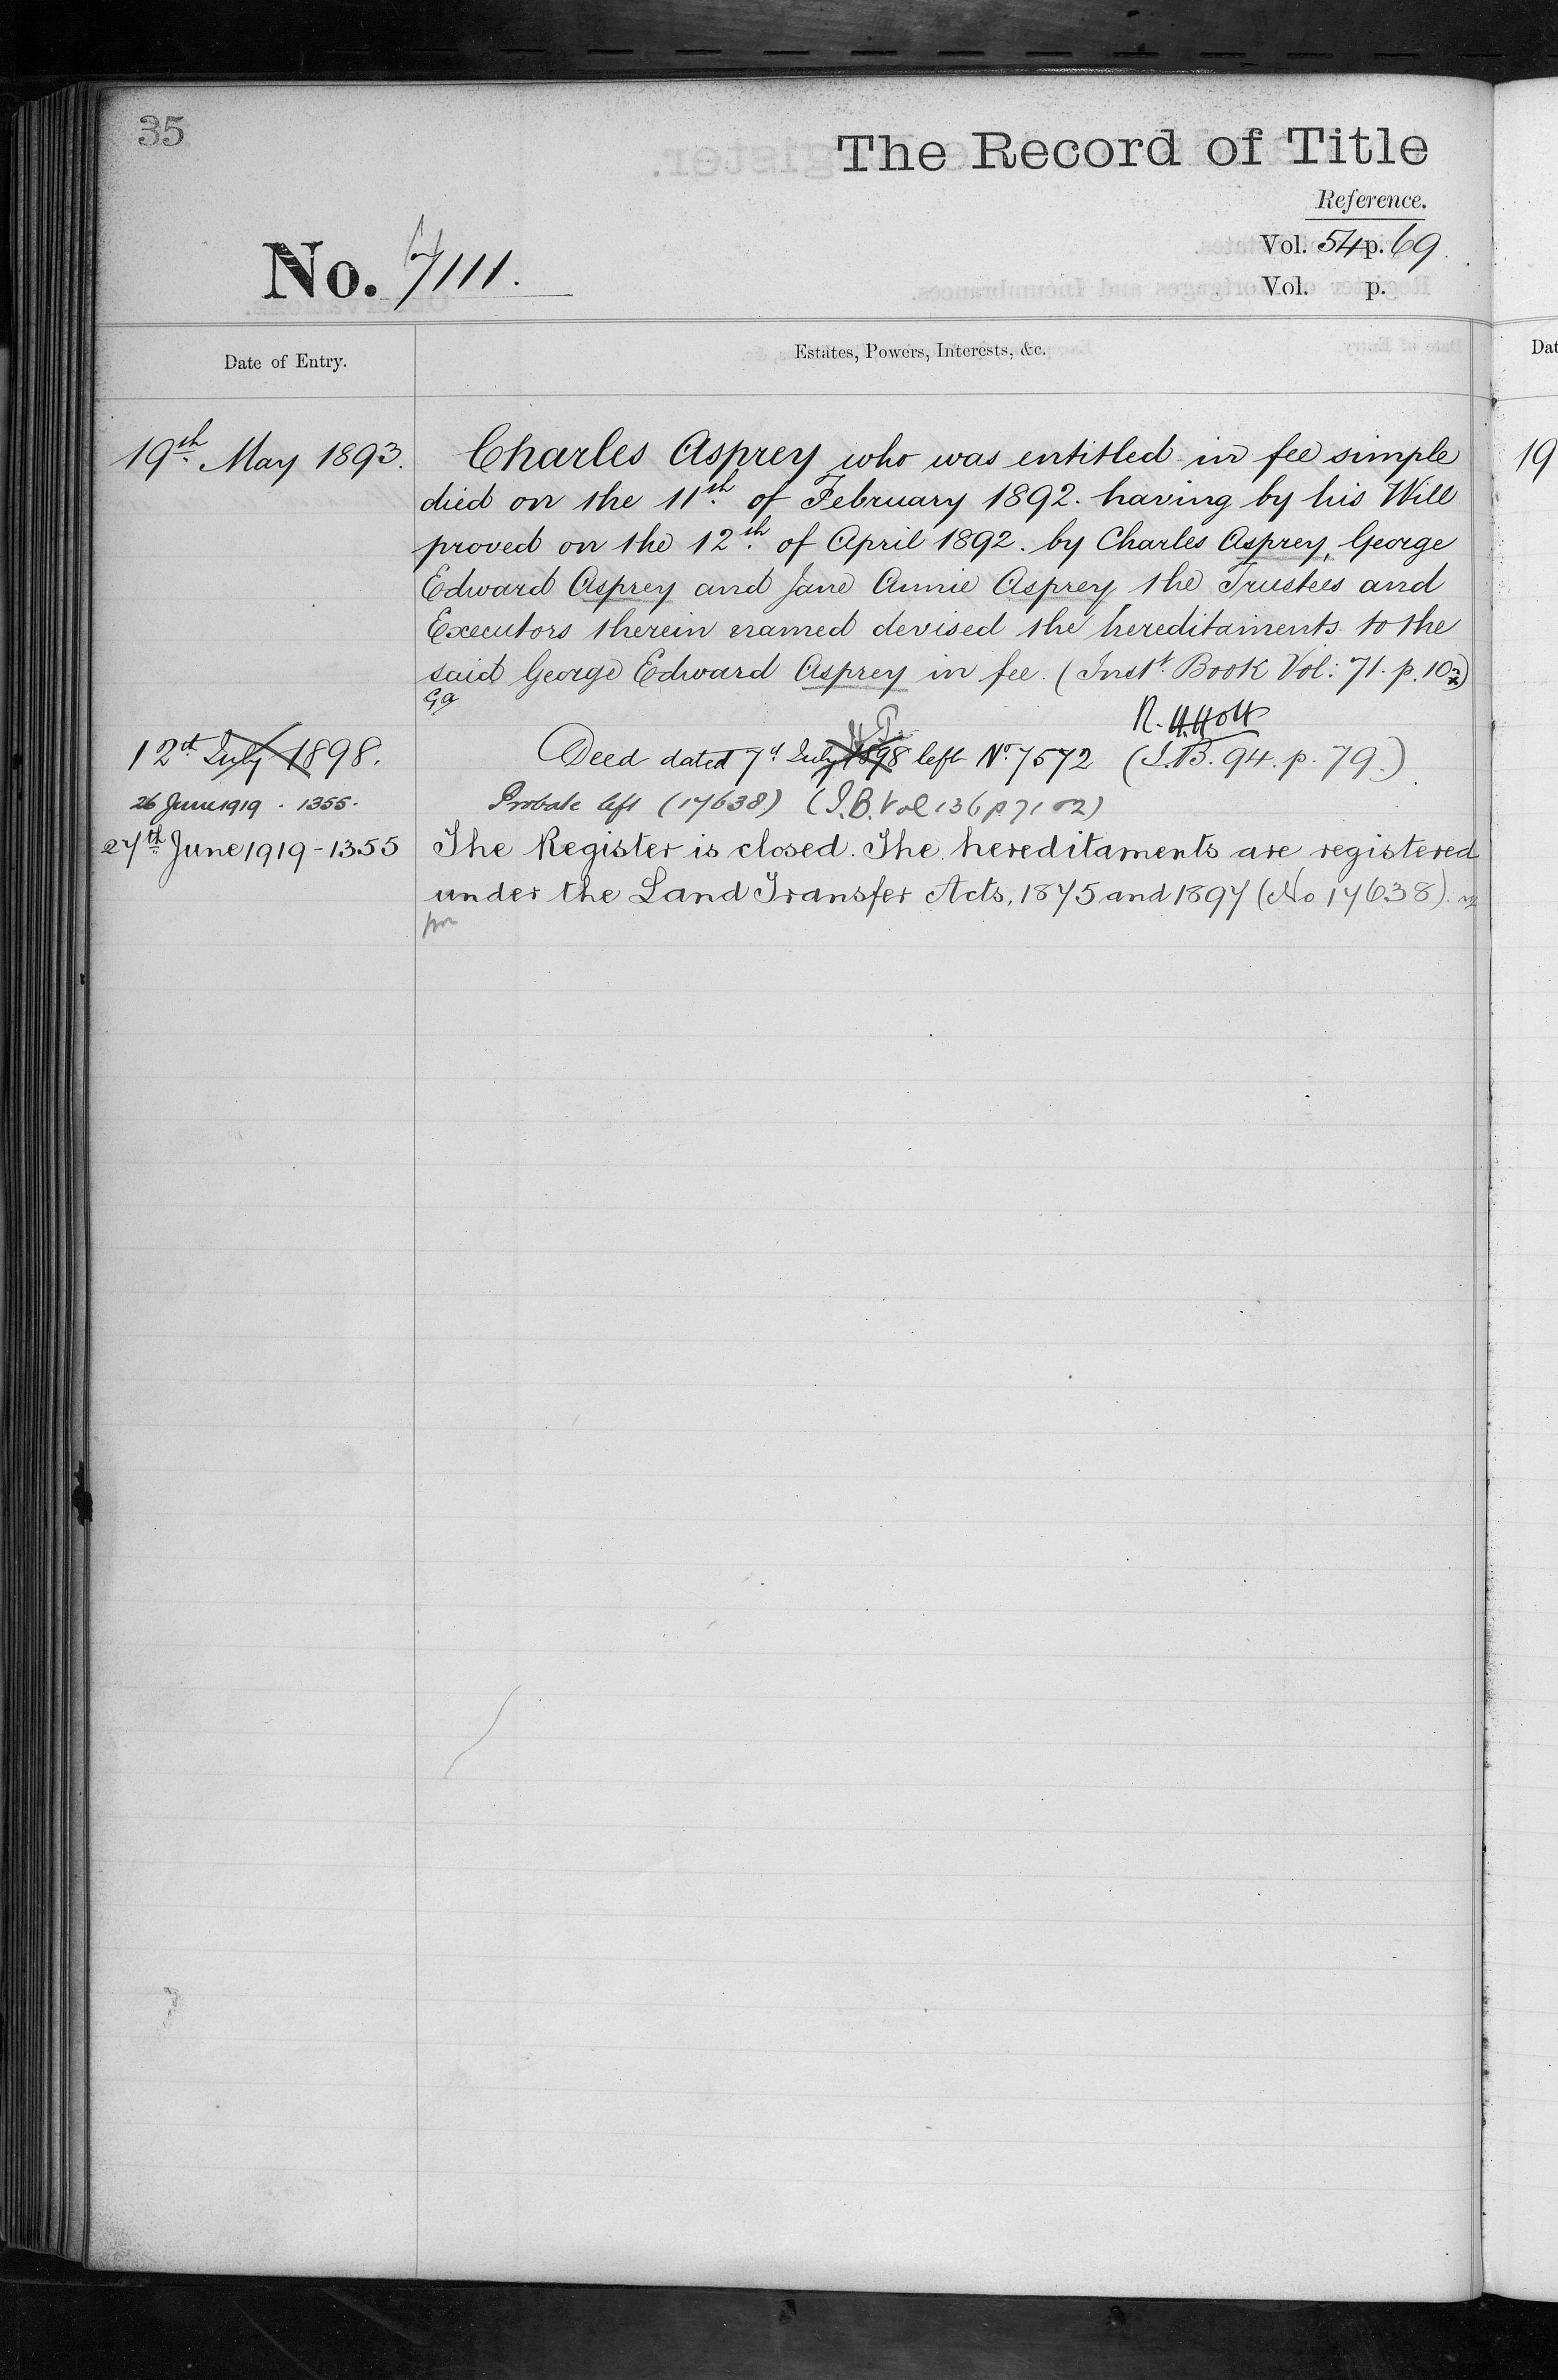 35
The Record of Title
Reference.
Vol. 54 p. 69.
No. 7111.
Vol. p.
Date of Entry.
Estates, Powers, Interests, &c.
Dat
19th May 1893. Charles Asprey who was entitled in fee simple
19
died on the 11th of February 1892. having by his Will
proved on the 12th of April 1892. by Charles Asprey, George
Edward Asprey and Jane Annie Asprey the Trustees and
Executors therein named devised the hereditaments to the
said George Edward Asprey in fee. (Inst. Book Vol: 71. p. 102)
Ga
R. H. Holt
12th July 1898. Deed dated 7th July 1898 left No. 7572 (I.B. 94. p. 79.)
26 June 1919 - 1355. Probate left (17638) (I.B. Vol 136 p 71 02)
27th June 1919 - 1355 The Register is closed. The hereditaments are registered
under the Land Transfer Acts, 1875 and 1897 (No 17638).